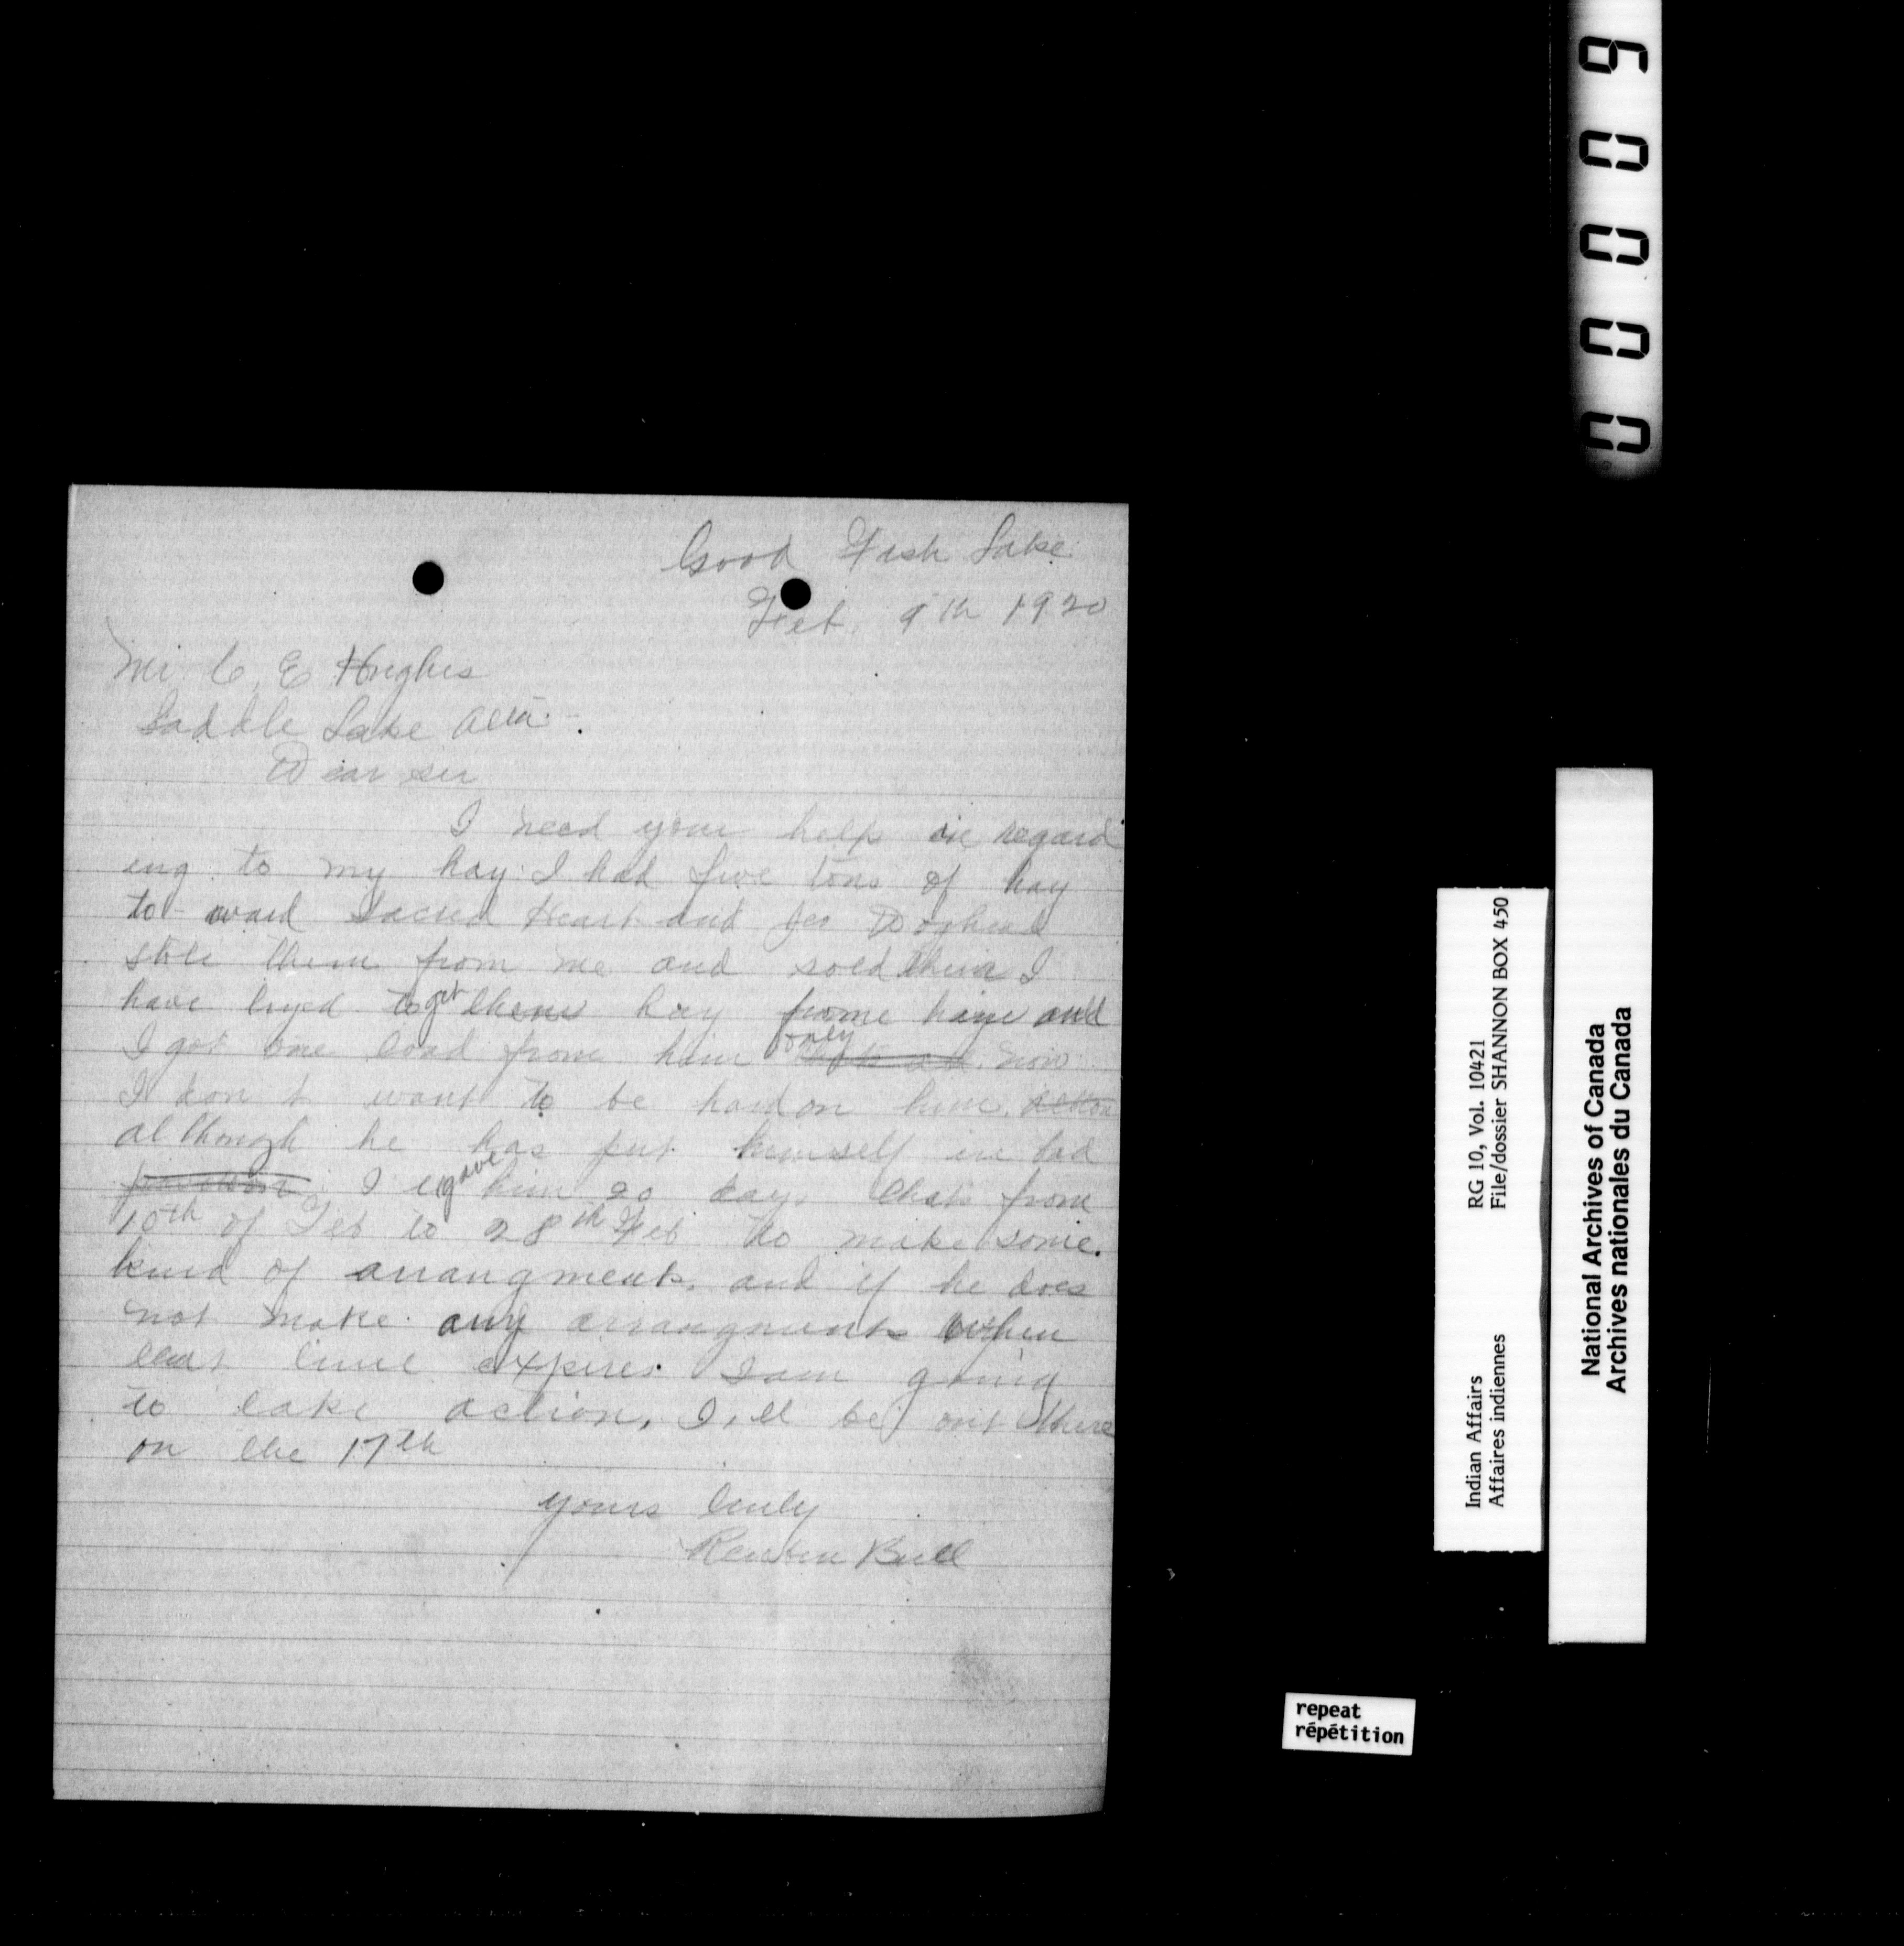 Good Fish Lake
Feb. 9th 1920
Mr C. E Hughes
Saddle Lake Alta.
Dear sir
I need your help in regard
ing to my hay. I had five tons of hay
to-ward Sacred Heart and
stole them from me and sold them I
have tryed to get them hay frome him and
I got one load from him only now
I don t want to be hard on him.
although he has put himself in bad
I gave him 20 days thats from
10th of Feb to 28th Feb to make some.
kind of arrangments. and if he does
not make any arrangments when
that time expires. I am going
to take action, I,ll be out there
on the 17th
yours truly
Reuben Bull
00009
Indian Affairs RG 10, Vol. 10421
Affaires indiennes File/dossier SHANNON BOX 450
National Archives of Canada
Archives nationales du Canada
repeat
répétition